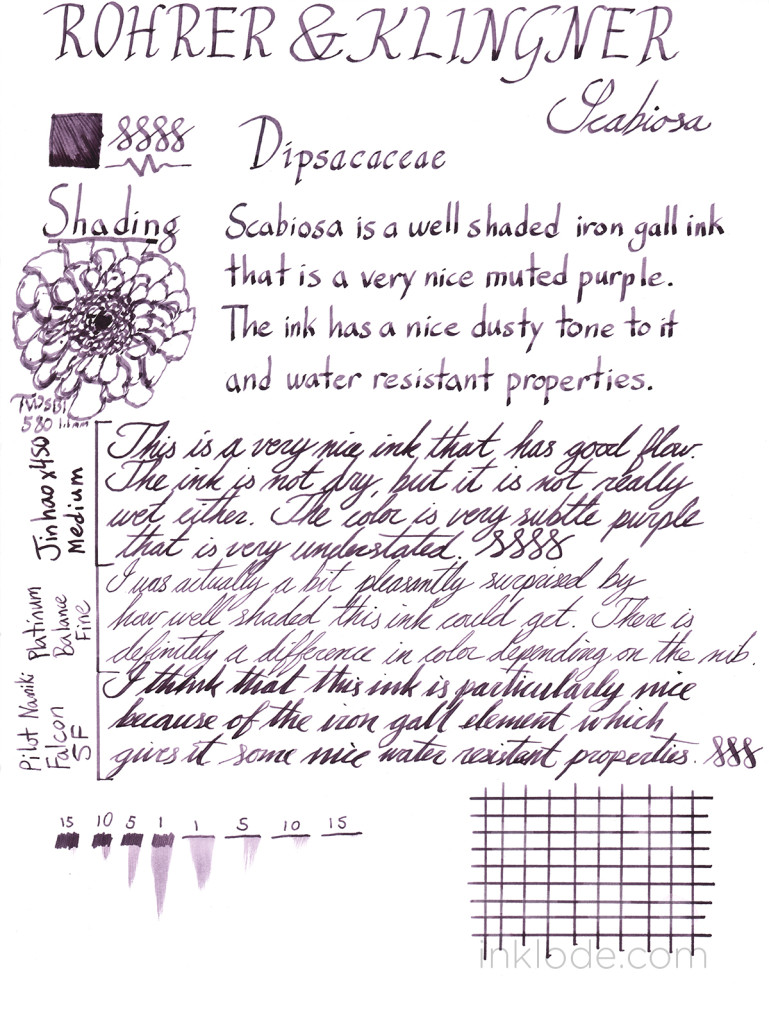 ROHRER & KLINGNER
Scabiosa
Dipsacaceae
Shading
Scabiosa is a well shaded iron gall ink
that is a very nice muted purple.
The ink has a nice dusty tone to it
and water resistant properties.
TWSBI
580 1.1mm
Jinhao x450
Medium
This is a very nice ink that has good flow.
The ink is not dry, but it is not really
wet either. The color is very subtle purple
that is very understated.
Platinum
Balance
Fine
I was actually a bit pleasantly surprised by
how well shaded this ink could get. There is
definitely a difference in color depending on the nib.
Pilot Namiki
Falcon
SF
I think that this ink is particularly nice
because of the iron gall element which
gives it some nice water resistant properties.
15 10 5 1 1 5 10 15
inklode.com